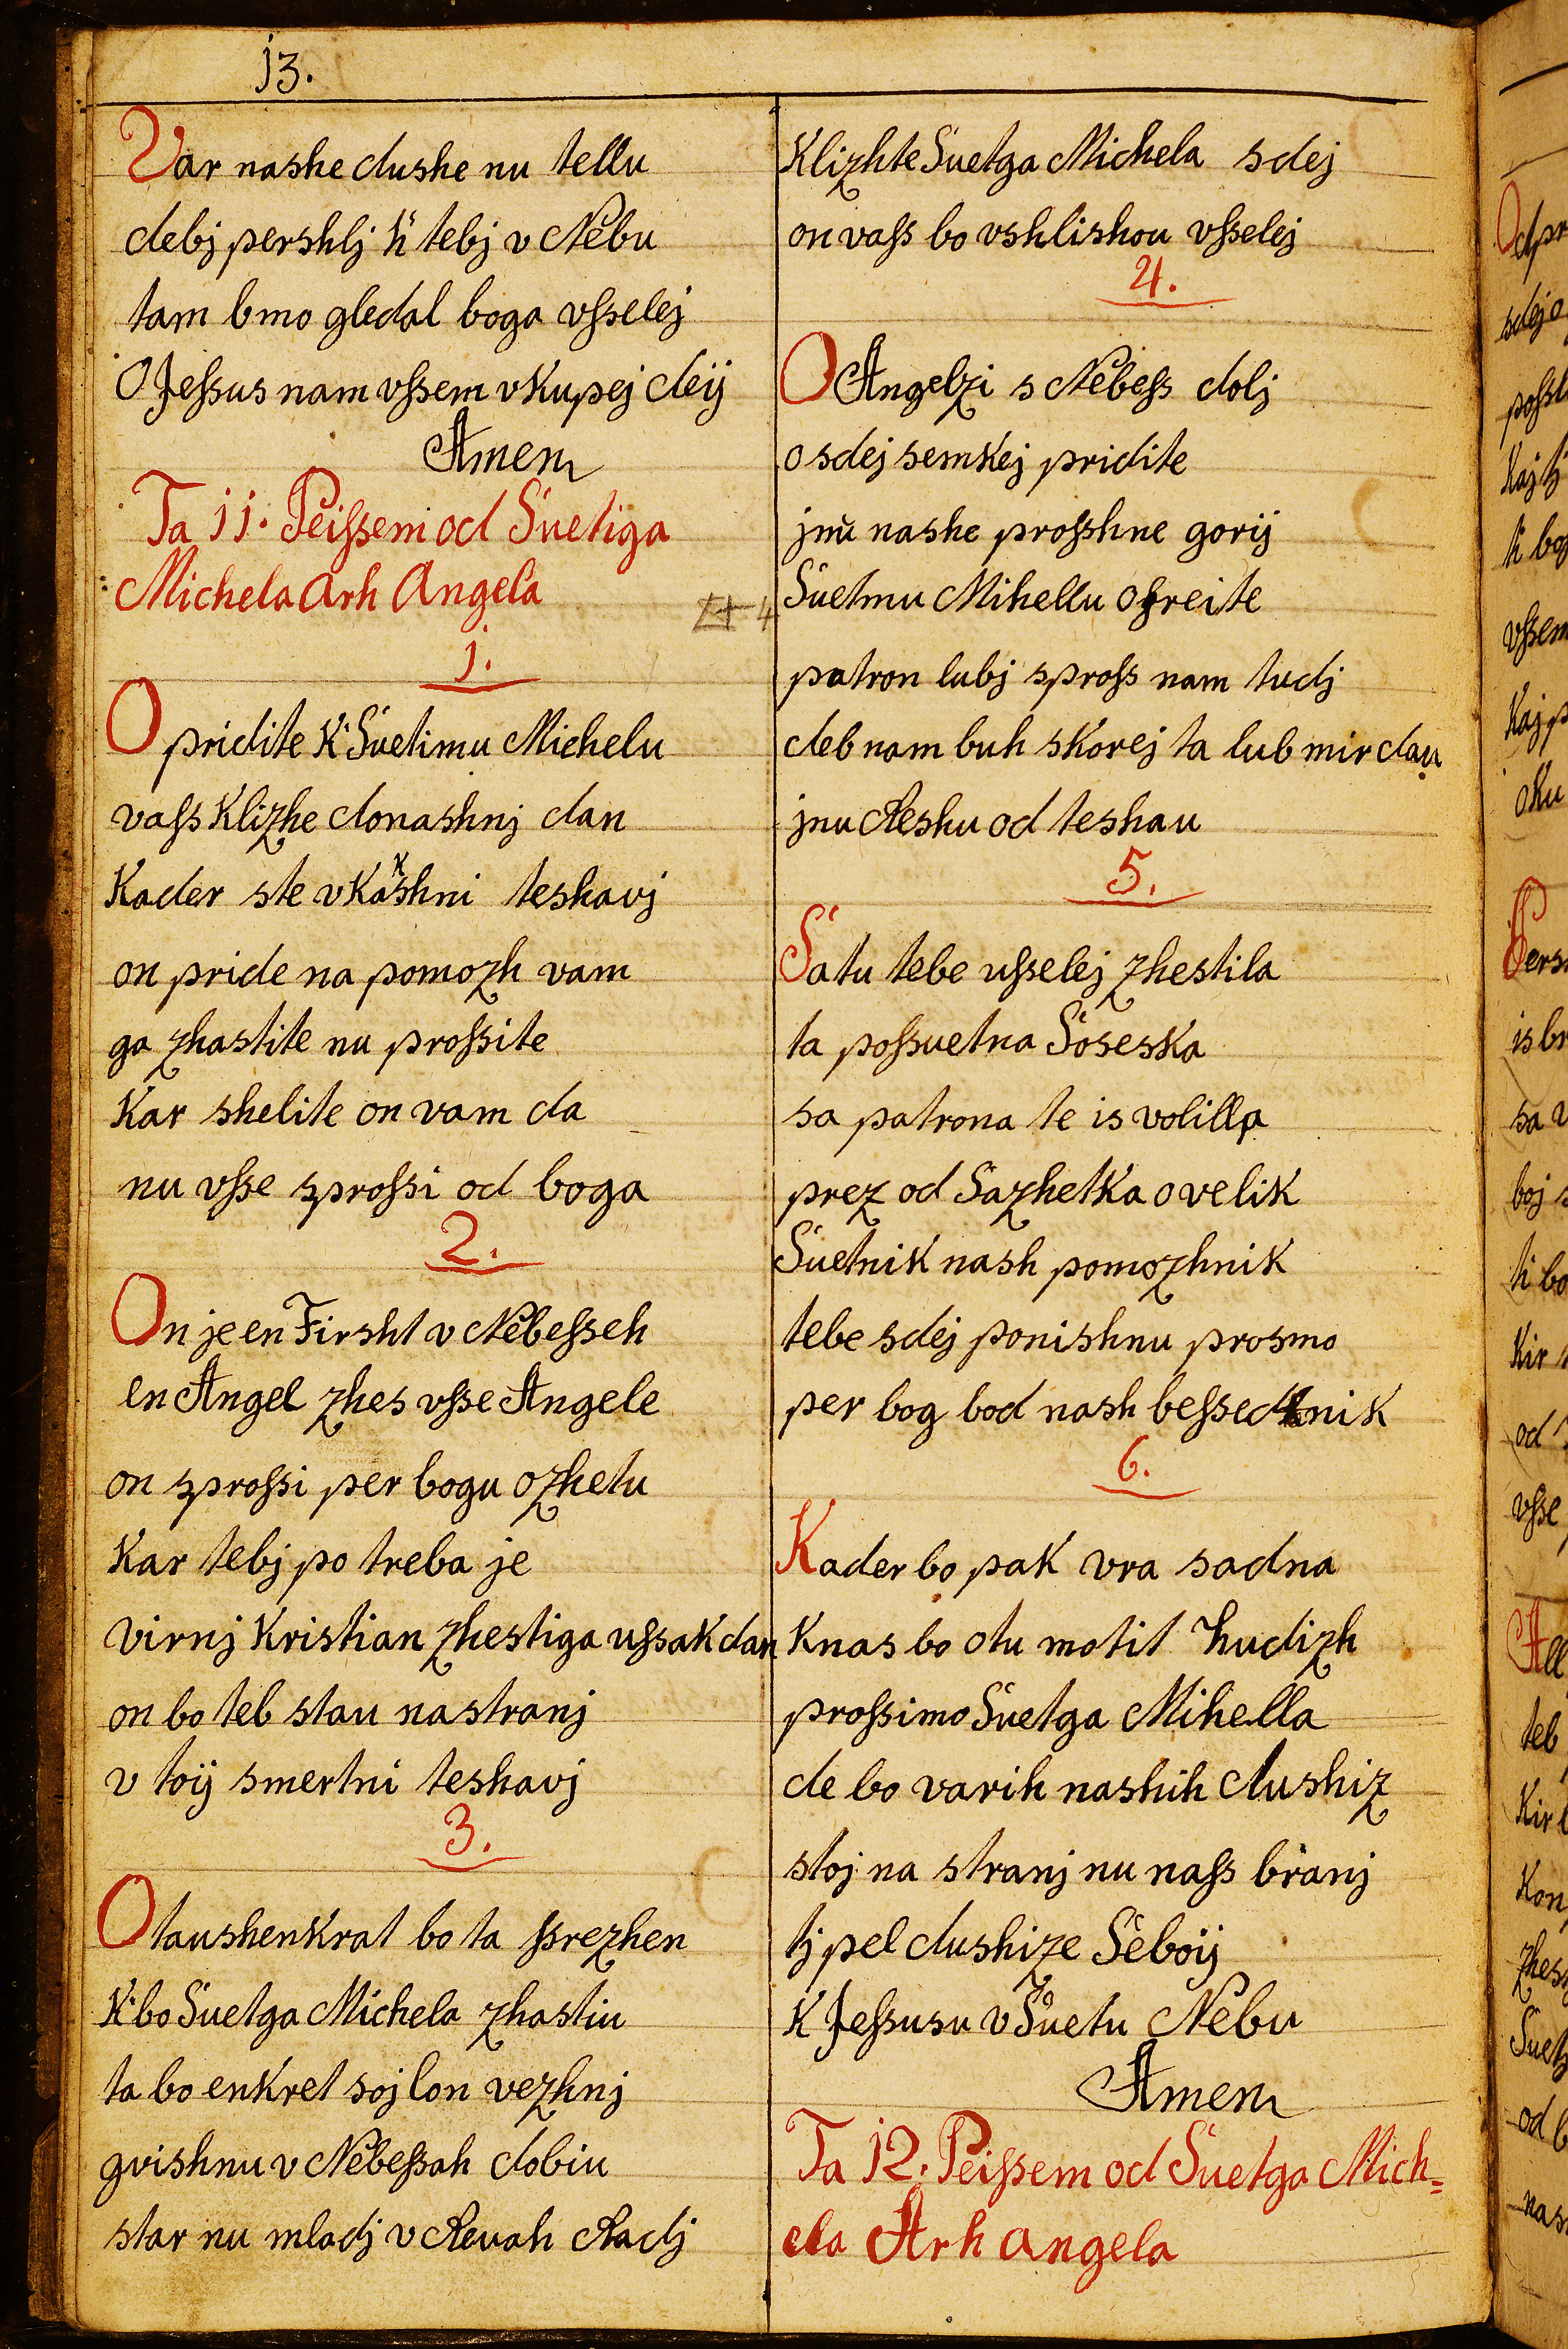 13.
Var nashe dushe nu tellu
debj pershlj k tebj v Nebu
tam bmo gledal boga vſselej
O Jeſsus nam vſsem vkupej deij
Amen
Ta 11. Peiſsem od Suetiga
Michela Arh Angela
1.
O pridite k Suetimu Michelu
vaſs klizhe donashnj dan
Kader ste vkashni teshavj
on pride na pomozh vam
ga zhastite nu proſsite
Kar shelite on vam da
nu vſse sproſsi od boga
2.
On je en Firsht v Nebeſseh
en Angel zhes vſse Angele
on sproſsi per bogu ozhetu
Kar tebj po treba je
virnj Kristian zhestiga uſsak dan
on bo teb stau na stranj
v toij smertni teshavj
3.
O taushenkrat bo ta ſsrezhen
K bo Suetga Michela zhastiu
ta bo enkret soj lon vezhnj
gvishnu v Nebeſsah dobiu
star nu mladj v Revah Radj
Klizhte Suetga Michela sdej
on vaſs bo vshlishou vſselej
4.
O Angelzi s Nebeſs dolj
o sdej semkej pridite
jnu nashe proſshne gorij
Suetmu Mihellu ofreite
patron lubj sproſs nam tudj
deb nam buh skorej ta lub mir dau
jnu Reshu od teshau
5.
Sa tu tebe uſselej zhestila
ta poſsuetna Soseska
sa patrona te is volilla
prez od Sazhetka o velik
Suetnik nash pomozhnik
tebe sdej ponishnu prosmo
per bog bod nash beſsednik
6.
Kader bo pak vra sadna
K nas bo otu motit hudizh
proſsimo Suetga Mihella
de bo varih nashih dushiz
stoj na stranj nu naſs branj
tj pel dushize Seboij
K Jeſsusu v Suetu Nebu
Amen
Ta 12. Peiſsem od Suetga Mich=
ela Arh angela